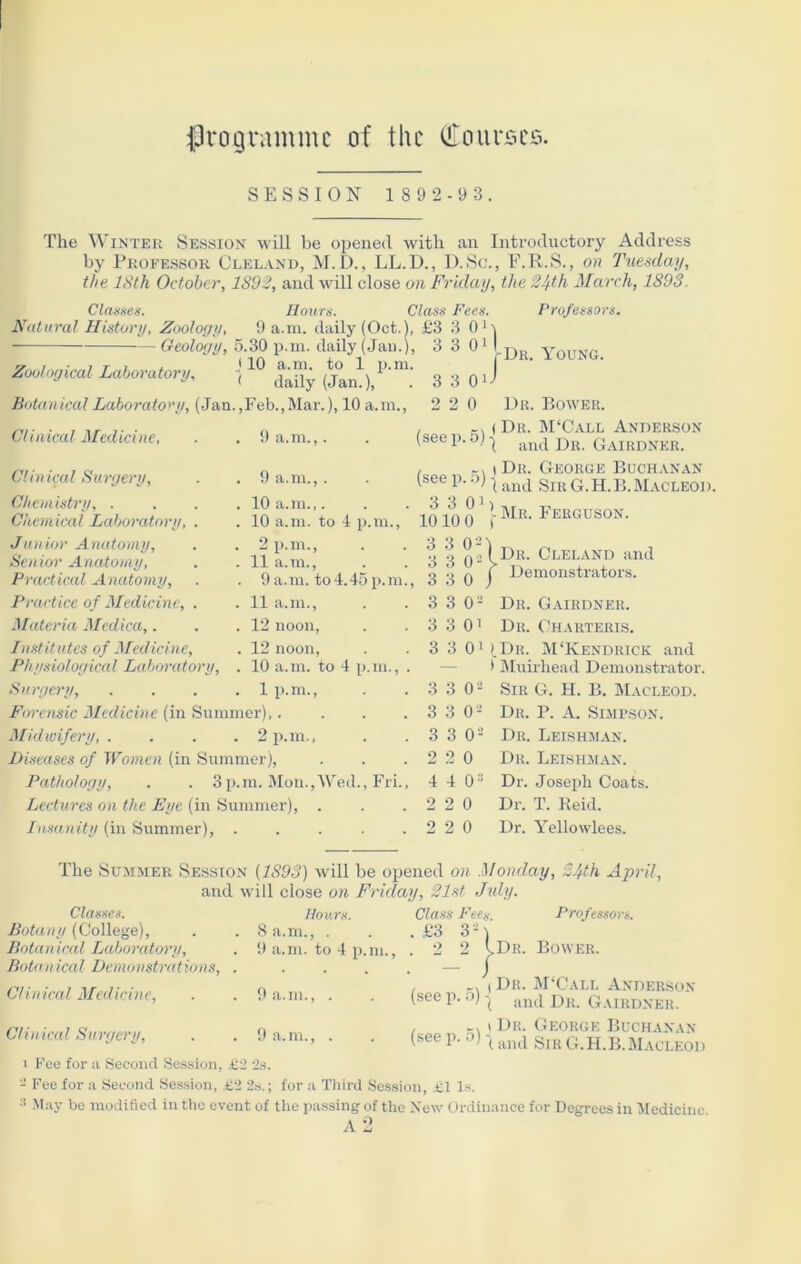 Programme of the Courses.
SESSION 1892-93.
The WINTER SESSION will be opened with an Introductory Address
by PROFESSOR CLELAND, M.D., LL.D., D.Sc., F.R.S., on Tuesday,
the 18th October, 1892, and will close on Friday, the 24th March, 1893.
Classes. Hours. Class Fees. Professors.
Natural History, Zoology, 9 a.m. daily (Oct.), £3 3 0¹
—— Geology, 5.30 p.m. daily (Jan.), 3 3 0¹ DR. YOUNG.
Zoological Laboratory, { 10 a.m. to 1 p.m. daily (Jan.), . 3 3 0¹
Botanical Laboratory, (Jan., Feb., Mar.), 10 a.m., 2 2 0 DR. BOWER.
Clinical Medicine, . . 9 a.m., . . (see p. 5) { DR. M‘CALL ANDERSON
and DR. GAIRDNER.
Clinical Surgery, . . 9 a.m., . . (see p. 5) { DR. GEORGE BUCHANAN
and SIR G. H. B. MACLEOD.
Chemistry, . . . . 10 a.m., . . . 3 3 0¹
Chemical Laboratory, . . 10 a.m. to 4 p.m., 10 10 0 } MR. FERGUSON.
Junior Anatomy, . . 2 p.m., . . 3 3 0²
Senior Anatomy, . . 11 a.m., . . 3 3 0² } DR. CLELAND and
Practical Anatomy, . . 9 a.m. to 4.45 p.m., 3 3 0 Demonstrators.
Practice of Medicine, . . 11 a.m., . . 3 3 0² DR. GAIRDNER.
Materia Medica, . . . 12 noon, . . 3 3 0¹ DR. CHARTERIS.
Institutes of Medicine, . 12 noon, . . 3 3 0¹ } DR. M‘KENDRICK and
Physiological Laboratory, . 10 a.m. to 4 p.m., . — Muirhead Demonstrator.
Surgery, . . . . 1 p.m., . . 3 3 0² SIR G. H. B. MACLEOD.
Forensic Medicine (in Summer), . . . . 3 3 0² DR. P. A. SIMPSON.
Midwifery, . . . . 2 p.m., . . 3 3 0² DR. LEISHMAN.
Diseases of Women (in Summer), . . . 2 2 0 DR. LEISHMAN.
Pathology, . . 3 p.m. Mon., Wed., Fri., 4 4 0³ Dr. Joseph Coats.
Lectures on the Eye (in Summer), . . . 2 2 0 Dr. T. Reid.
Insanity (in Summer), . . . . . 2 2 0 Dr. Yellowlees.
The SUMMER SESSION (1893) will be opened on Monday, 24th April,
and will close on Friday, 21st July.
Classes. Hours. Class Fees. Professors.
Botany (College), . . 8 a.m., . . . £3 3²
Botanical Laboratory, . 9 a.m. to 4 p.m., . 2 2 } DR. BOWER.
Botanical Demonstrations, . . . . . —
Clinical Medicine, . . 9 a.m., . . (see p. 5) { DR. M‘CALL ANDERSON
and DR. GAIRDNER.
Clinical Surgery, . . 9 a.m., . . (see p. 5) { DR. GEORGE BUCHANAN
and SIR G. H. B. MACLEOD
1 Fee for a Second Session, £2 2s.
2 Fee for a Second Session, £2 2s.; for a Third Session, £1 1s.
3 May be modified in the event of the passing of the New Ordinance for Degrees in Medicine.
A 2